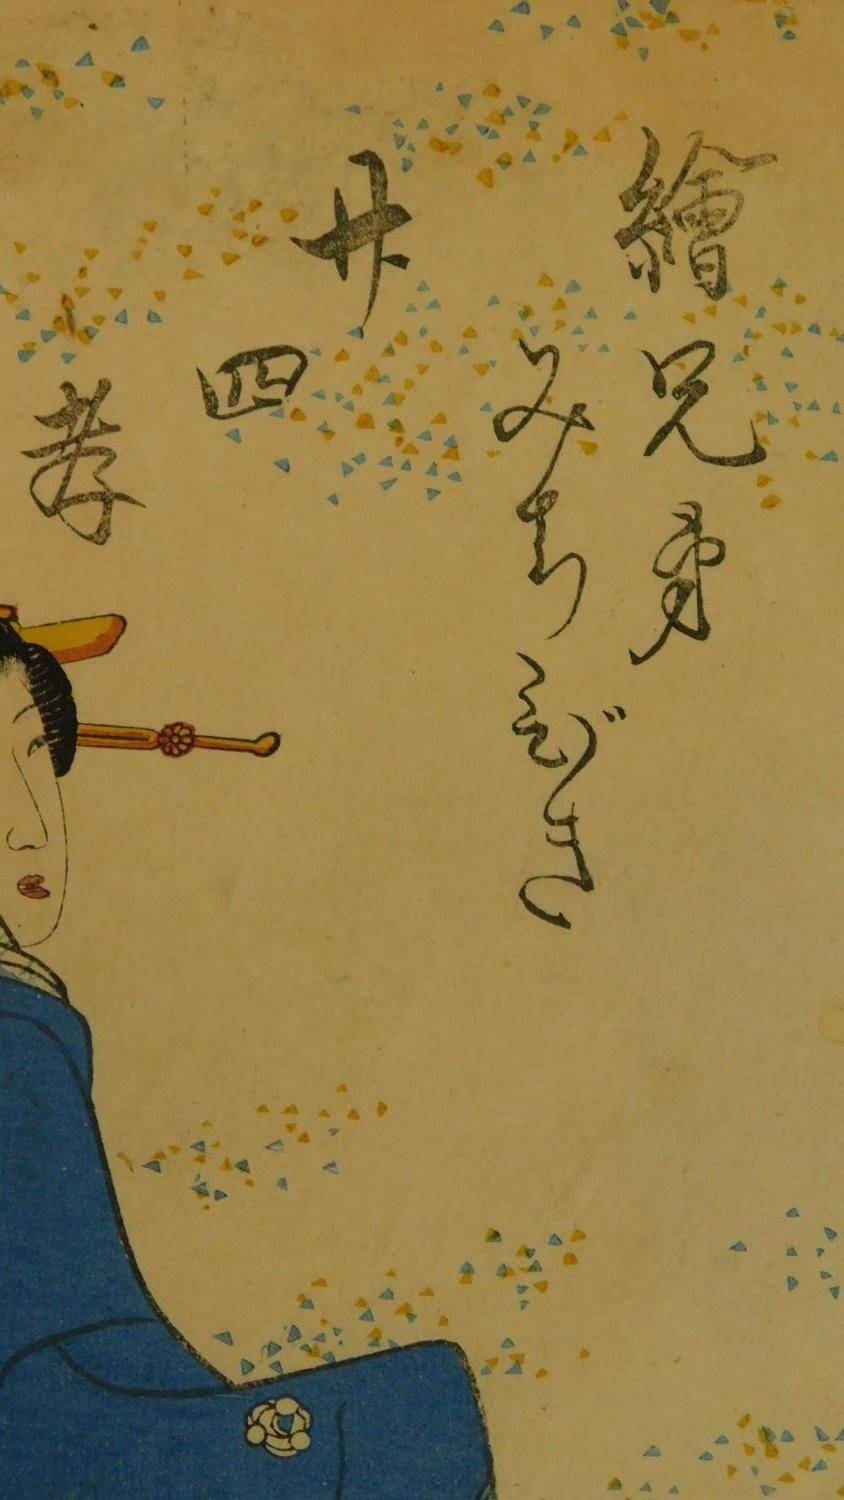 繪兄弟
みちびき
廿四孝